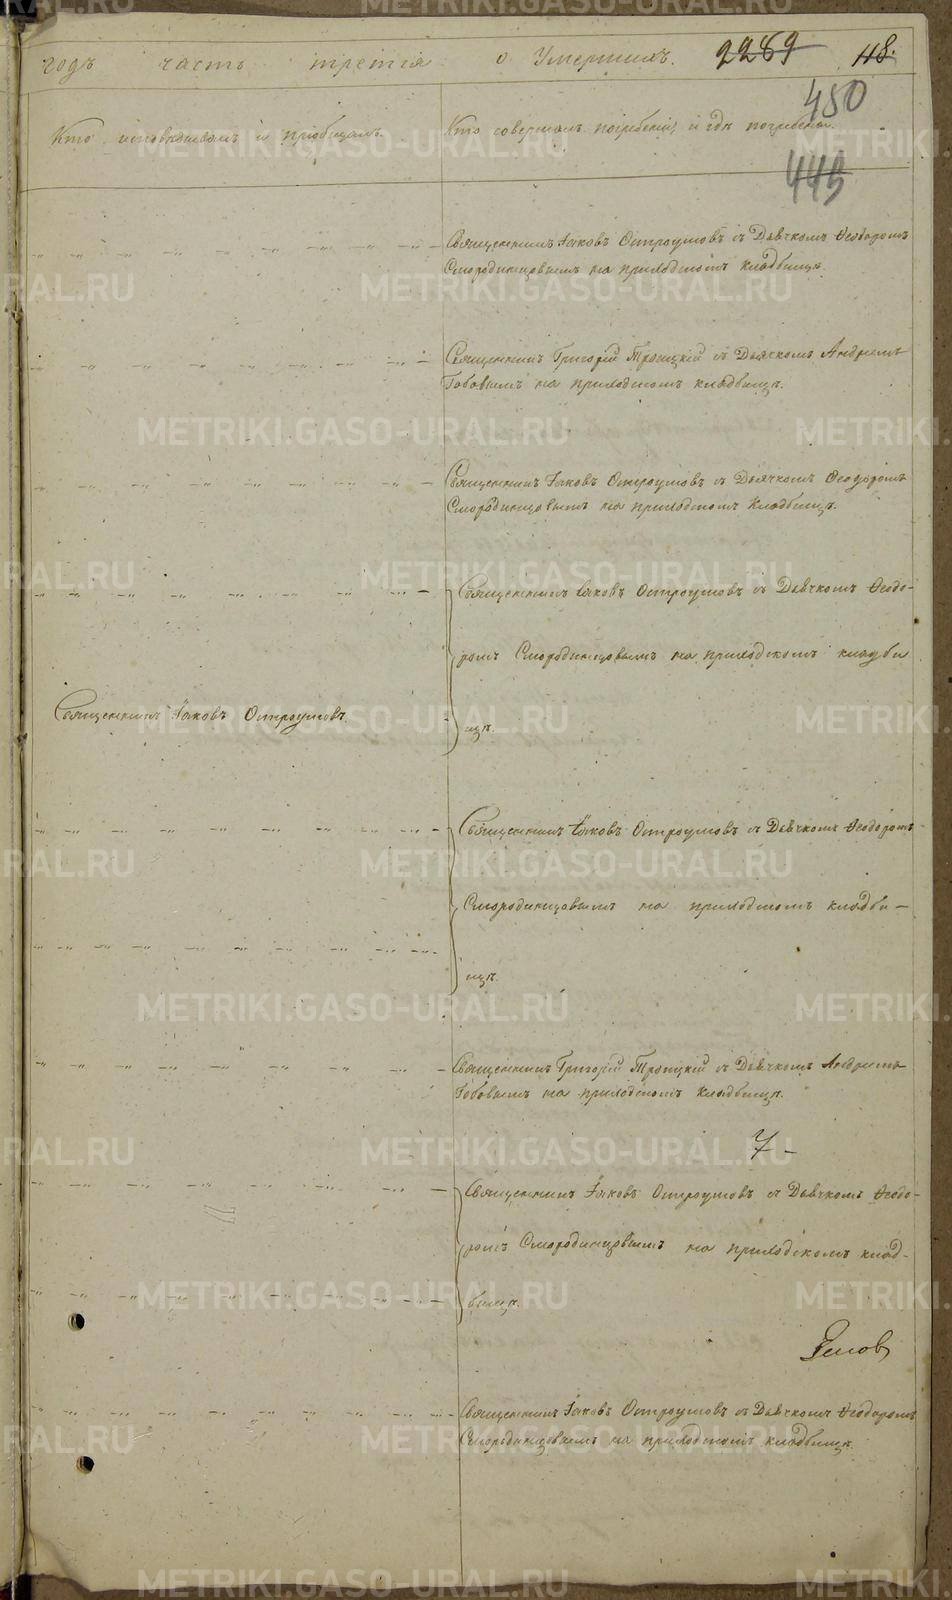 годъ часть третія о Умершихъ. 2289 118.
450
Кто исповѣдывалъ и пріобщалъ. Кто совершалъ погребеніе, и гдѣ погребены.
449
Священникъ Іаковъ Остроумовъ съ Дьячкомъ Ѳеодоромъ
Смородинцовымъ на приходскомъ кладбищѣ.
Священникъ Григорій Троицкій съ Дьячкомъ Андреемъ
на приходскомъ кладбищѣ.
Священникъ Іаковъ Остроумовъ съ Дьячкомъ Ѳеодоромъ
Смородинцовымъ на приходскомъ Кладбищѣ.
Священникъ Іаковъ Остроумовъ съ Дьячкомъ Ѳеодо-
ромъ Смородинцовымъ на приходскомъ кладби
Священникъ Іаковъ Остроумовъ
щѣ.
Священникъ Іаковъ Остроумовъ съ Дьячкомъ Ѳеодоромъ
Смородинцовымъ на приходскомъ кладби-
щѣ.
Священникъ Григорій Троицкій съ Дьячкомъ Андреемъ
на приходскомъ кладбищѣ.
7-
Священникъ Іаковъ Остроумовъ съ Дьячкомъ Ѳеодо-
ромъ Смородинцовымъ на приходскомъ клад-
бищѣ.
Священникъ Іаковъ Остроумовъ съ Дьячкомъ Ѳеодоромъ
Смородинцовымъ на приходскомъ кладбищѣ.
METRIKI.GASO-URAL.RU